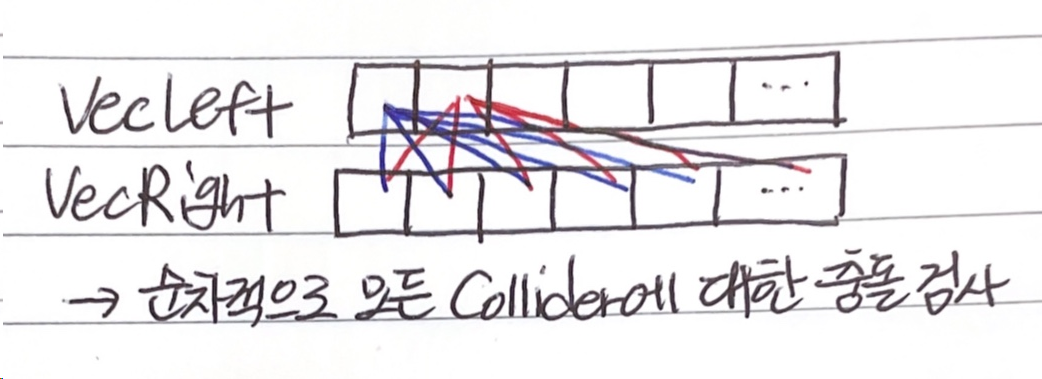 VecLeft
...
VecRight
...
→ 순차적으로 모든 Collider에 대한 충돌 검사